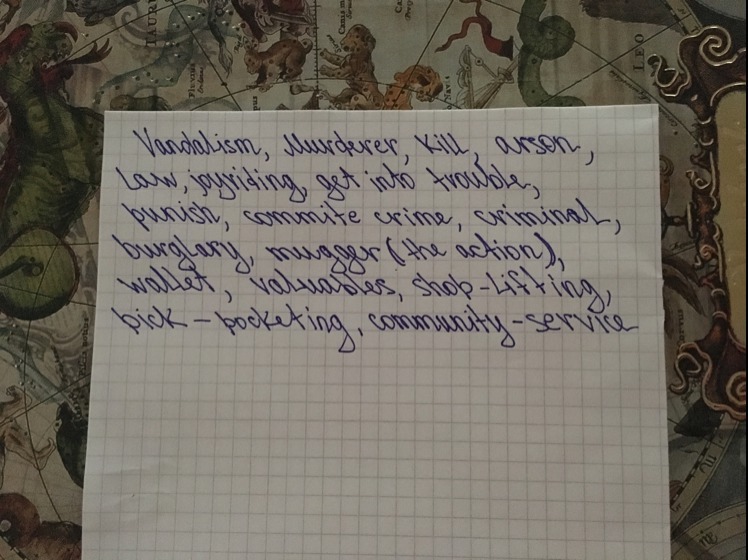 Vandalism, Murderer, Kill, arson,
Law, joyriding, get into trouble,
punish, commite crime, criminal,
burglary, mugger (the action),
wallet, valuables, shop-lifting,
pick-pocketing, community-service
LEO